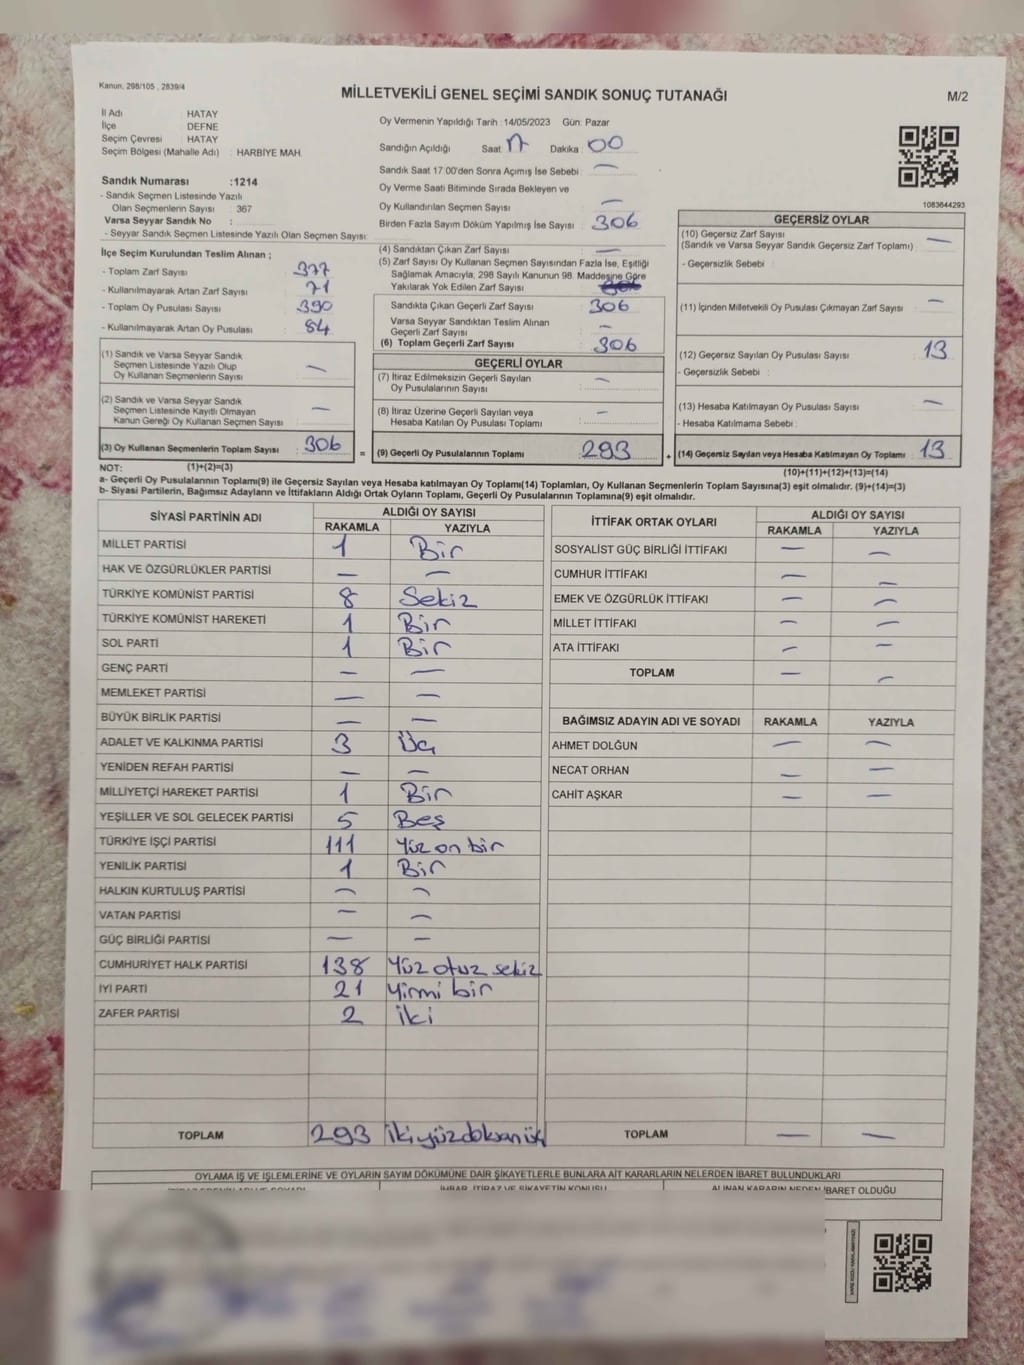 Kanun, 298/105 , 2839/4
MİLLETVEKİLİ GENEL SEÇİMİ SANDIK SONUÇ TUTANAĞI
M/2
İl Adı : HATAY
İlçe : DEFNE
Seçim Çevresi : HATAY
Seçim Bölgesi (Mahalle Adı) : HARBİYE MAH.
Sandık Numarası :1214
- Sandık Seçmen Listesinde Yazılı
Olan Seçmenlerin Sayısı : 367
Varsa Seyyar Sandık No :
- Seyyar Sandık Seçmen Listesinde Yazılı Olan Seçmen Sayısı:
Oy Vermenin Yapıldığı Tarih :14/05/2023 Gün: Pazar
Sandığın Açıldığı Saat 17 Dakika : 00
Sandık Saat 17:00'den Sonra Açımış İse Sebebi : —
Oy Verme Saati Bitiminde Sırada Bekleyen ve
Oy Kullandırılan Seçmen Sayısı : —
Birden Fazla Sayım Döküm Yapılmış İse Sayısı : 306
1083644293
İlçe Seçim Kurulundan Teslim Alınan ;
- Toplam Zarf Sayısı : 377
- Kullanılmayarak Artan Zarf Sayısı : 71
- Toplam Oy Pusulası Sayısı : 390
- Kullanılmayarak Artan Oy Pusulası : 84
(1) Sandık ve Varsa Seyyar Sandık
Seçmen Listesinde Yazılı Olup
Oy Kullanan Seçmenlerin Sayısı : —
(2) Sandık ve Varsa Seyyar Sandık
Seçmen Listesinde Kayıtlı Olmayan
Kanun Gereği Oy Kullanan Seçmen Sayısı : —
(3) Oy Kullanan Seçmenlerin Toplam Sayısı : 306
(4) Sandıktan Çıkan Zarf Sayısı : —
(5) Zarf Sayısı Oy Kullanan Seçmen Sayısından Fazla İse, Eşitliği
Sağlamak Amacıyla, 298 Sayılı Kanunun 98. Maddesine Göre
Yakılarak Yok Edilen Zarf Sayısı :
Sandıkta Çıkan Geçerli Zarf Sayısı : 306
Varsa Seyyar Sandıktan Teslim Alınan
Geçerli Zarf Sayısı : —
(6) Toplam Geçerli Zarf Sayısı : 306
GEÇERLİ OYLAR
(7) İtiraz Edilmeksizin Geçerli Sayılan
Oy Pusulalarının Sayısı : —
(8) İtiraz Üzerine Geçerli Sayılan veya
Hesaba Katılan Oy Pusulası Toplamı : —
= (9) Geçerli Oy Pusulalarının Toplamı : 293
GEÇERSİZ OYLAR
(10) Geçersiz Zarf Sayısı : —
(Sandık ve Varsa Seyyar Sandık Geçersiz Zarf Toplamı)
- Geçersizlik Sebebi :
(11) İçinden Milletvekili Oy Pusulası Çıkmayan Zarf Sayısı : —
(12) Geçersiz Sayılan Oy Pusulası Sayısı : 13
- Geçersizlik Sebebi :
(13) Hesaba Katılmayan Oy Pusulası Sayısı : —
- Hesaba Katılmama Sebebi :
+ (14) Geçersiz Sayılan veya Hesaba Katılmayan Oy Toplamı : 13
NOT: (1)+(2)=(3) (10)+(11)+(12)+(13)=(14)
a- Geçerli Oy Pusulalarının Toplamı(9) ile Geçersiz Sayılan veya Hesaba katılmayan Oy Pusulası Toplamı(14) Toplamları, Oy Kullanan Seçmenlerin Toplam Sayısına(3) eşit olmalıdır. (9)+(14)=(3)
b- Siyasi Partilerin, Bağımsız Adayların ve İttifakların Aldığı Ortak Oyların Toplamı, Geçerli Oy Pusulalarının Toplamına(9) eşit olmalıdır.
SİYASİ PARTİNİN ADI ALDIĞI OY SAYISI
RAKAMLA YAZIYLA
MİLLET PARTİSİ 1 Bir
HAK VE ÖZGÜRLÜKLER PARTİSİ — —
TÜRKİYE KOMÜNİST PARTİSİ 8 Sekiz
TÜRKİYE KOMÜNİST HAREKETİ 1 Bir
SOL PARTİ 1 Bir
GENÇ PARTİ — —
MEMLEKET PARTİSİ — —
BÜYÜK BİRLİK PARTİSİ — —
ADALET VE KALKINMA PARTİSİ 3 Üç
YENİDEN REFAH PARTİSİ — —
MİLLİYETÇİ HAREKET PARTİSİ 1 Bir
YEŞİLLER VE SOL GELECEK PARTİSİ 5 Beş
TÜRKİYE İŞÇİ PARTİSİ 111 Yüz on bir
YENİLİK PARTİSİ 1 Bir
HALKIN KURTULUŞ PARTİSİ — —
VATAN PARTİSİ — —
GÜÇ BİRLİĞİ PARTİSİ — —
CUMHURİYET HALK PARTİSİ 138 Yüz otuz sekiz
İYİ PARTİ 21 Yirmi bir
ZAFER PARTİSİ 2 iki
TOPLAM 293 ikiyüzdoksanüç
İTTİFAK ORTAK OYLARI ALDIĞI OY SAYISI
RAKAMLA YAZIYLA
SOSYALİST GÜÇ BİRLİĞİ İTTİFAKI — —
CUMHUR İTTİFAKI — —
EMEK VE ÖZGÜRLÜK İTTİFAKI — —
MİLLET İTTİFAKI — —
ATA İTTİFAKI — —
TOPLAM — —
BAĞIMSIZ ADAYIN ADI VE SOYADI RAKAMLA YAZIYLA
AHMET DOLĞUN — —
NECAT ORHAN — —
CAHİT AŞKAR — —
TOPLAM — —
OYLAMA İŞ VE İŞLEMLERİNE VE OYLARIN SAYIM DÖKÜMÜNE DAİR ŞİKAYETLERLE BUNLARA AİT KARARLARIN NELERDEN İBARET BULUNDUKLARI
İHBAR, İTİRAZ VE ŞİKAYETİN KONUSU
ALINAN KARARIN NEDEN İBARET OLDUĞU